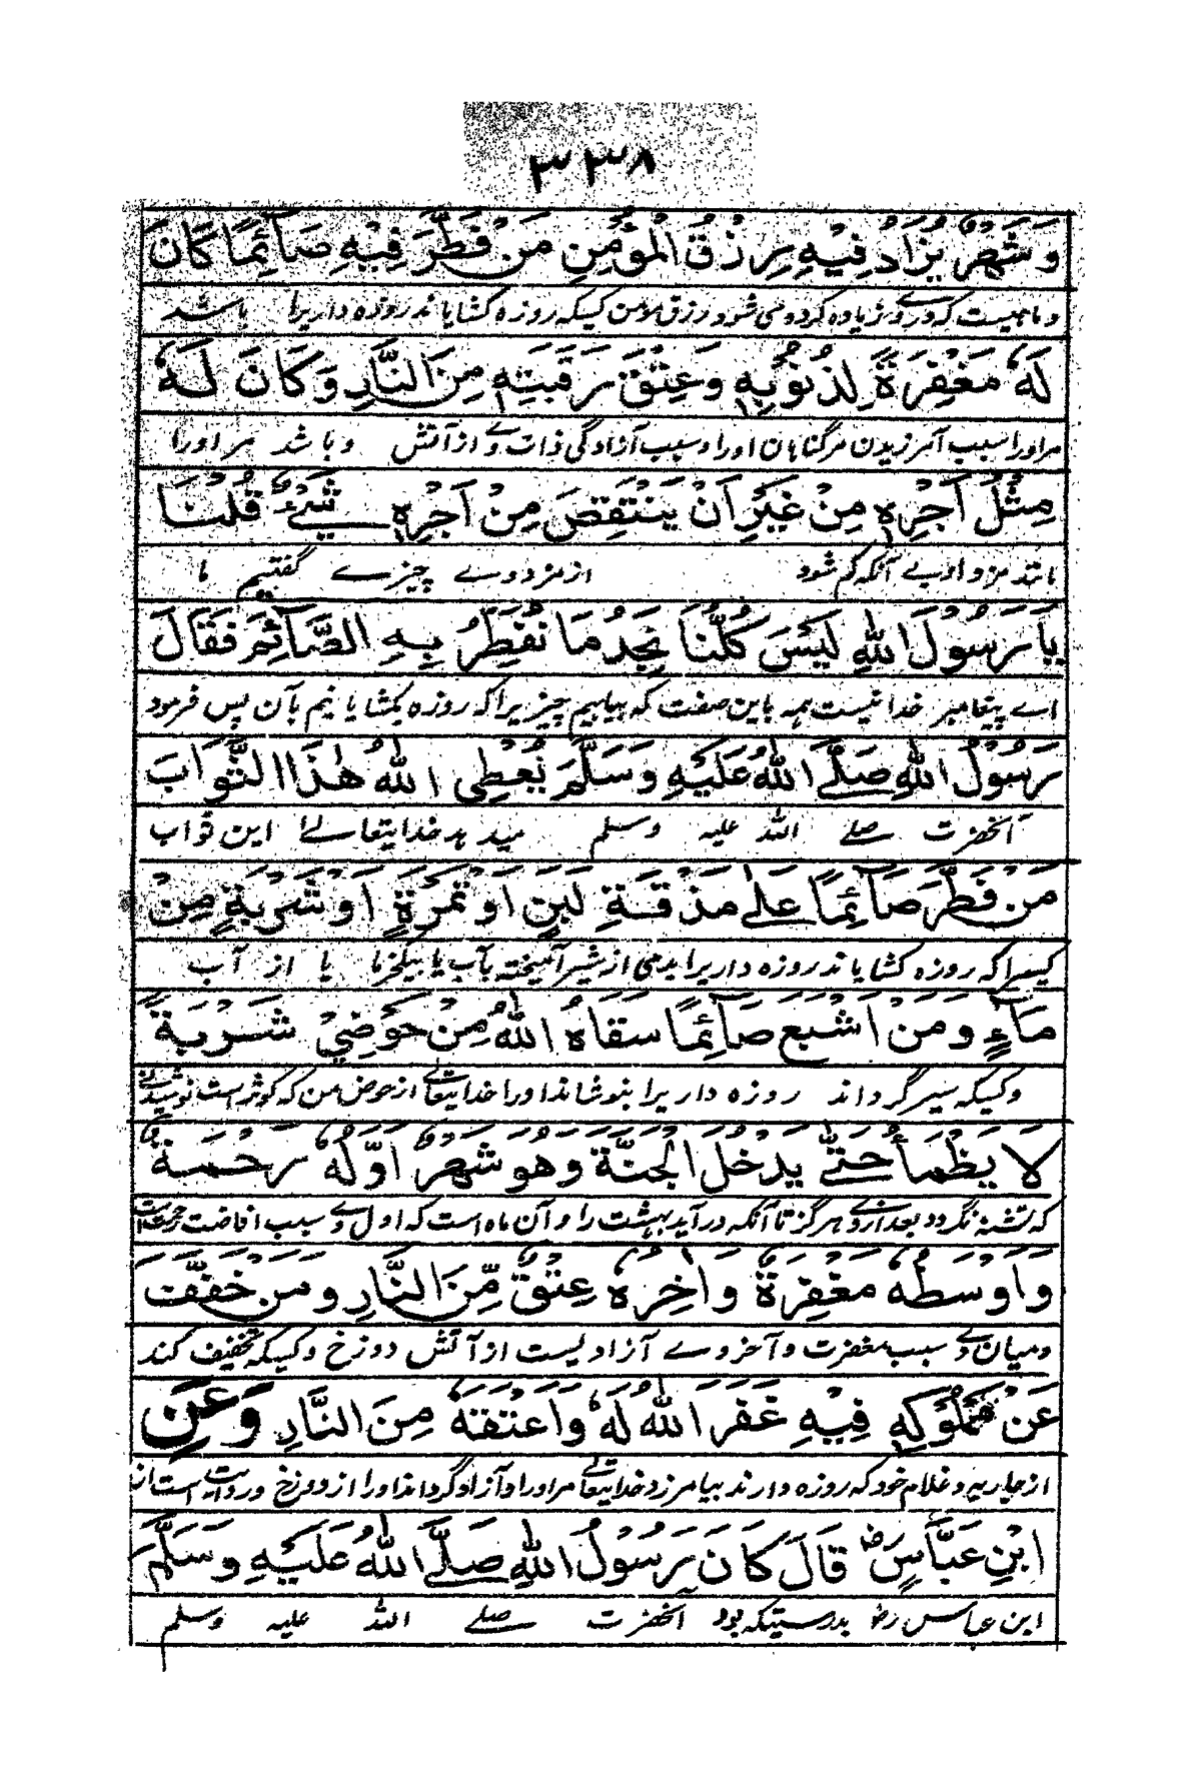 ٣٣٨
وَشَهْرٌ يُزَادُ فِيْهِ رِزْقُ الْمُؤْمِنِ مَنْ فَطَّرَ فِيْهِ صَآئِمًا كَانَ
و ماهیست که در وے زیاده کرده می شود رزق مومن کسیکه روزه کشایاند روزه داریرا باشد
لَهٗ مَغْفِرَةٌ لِذُنُوْبِهٖ وَعِتْقَ رَقَبَتِهٖ مِنَ النَّارِ وَكَانَ لَهٗ
مر اورا سبب آمرزیدن مر گناهان او را و سبب آزادگی ذات وے از آتش و باشد مر اورا
مِثْلُ اَجْرِهٖ مِنْ غَيْرِ اَنْ يَنْتَقِصَ مِنْ اَجْرِهٖ شَيْءٌ قُلْنَا
مانند مزد او بے آنکه کم شود از مزد وے چیزے گفتیم ما
يَا رَسُوْلَ اللهِ لَيْسَ كُلُّنَا نَجِدُ مَا نُفَطِّرُ بِهِ الصَّآئِمَ فَقَالَ
اے پیغامبر خدا نیست همه باین صفت که بیابیم چیزیرا که روزه بکشایانیم بآن پس فرمود
رَسُوْلُ اللهِ صَلَّے اللهُ عَلَيْهِ وَسَلَّمَ يُعْطِى اللهُ هٰذَا الثَّوَابَ
آنحضرت صلے الله علیه وسلم میدهد خدایتعالے این ثواب
مَنْ فَطَّرَ صَآئِمًا عَلٰے مَذْقَةِ لَبَنٍ اَوْ تَمْرَةٍ اَوْ شَرْبَةٍ مِنْ
کسیرا که روزه کشایاند روزه داریرا بدمی از شیر آمیخته بآب یا بیکخرما یا از آب
مَآءٍ وَمَنْ اَشْبَعَ صَآئِمًا سَقَاهُ اللهُ مِنْ حَوْضِيْ شَرْبَةً
و کسیکه سیر گرداند روزه داریرا بنوشاند او را خدایتعالے از حوض من که کوثر است نوشیدنی
لَا يَظْمَأُ حَتّٰے يَدْخُلَ الْجَنَّةَ وَهُوَ شَهْرٌ اَوَّلُهٗ رَحْمَةٌ
که تشنه نگردد بعد ازوے هرگز تا آنکه در آید بهشت را و آن ماه است که اول وے سبب افاضت
وَاَوْسَطُهٗ مَغْفِرَةٌ وَاٰخِرُهٗ عِتْقٌ مِّنَ النَّارِ وَمَنْ خَفَّفَ
و میان وے سبب مغفرت و آخر وے آزادیست از آتش دوزخ و کسیکه تخفیف کند
عَنْ مَمْلُوْكِهٖ فِيْهِ غَفَرَ اللهُ لَهٗ وَاَعْتَقَهٗ مِنَ النَّارِ وَعَنِ
از جاریه و غلام خود که روزه دارند بیامرزد خدایتعالے مر اورا و آزاد گرداند اورا از دوزخ و روایت است از
ابْنِ عَبَّاسٍ رض قَالَ كَانَ رَسُوْلُ اللهِ صَلَّے اللهُ عَلَيْهِ وَسَلَّمَ
ابن عباس رض بدرستیکه بود آنحضرت صلے الله علیه وسلم